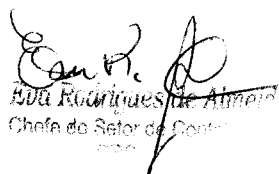 Eva Rodrigues de Almeid
Chefe do Setor de Cont